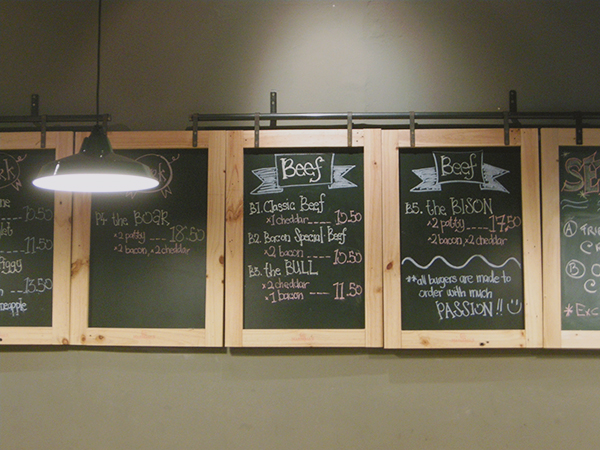 10.50
11.50
13.50
P4. the BOAR
×2 patty ---- 18.50
×2 bacon ×2 cheddar
Beef
B1. Classic Beef
×1 cheddar ---- 10.50
B2. Bacon Special Beef
×2 bacon ---- 10.50
B3. the BULL
×2 cheddar
×1 bacon ---- 11.50
Beef
B5. the BISON
×2 patty ---- 17.50
×2 bacon, ×2 cheddar
**all burgers are made to
order with much
PASSION!!
A
B